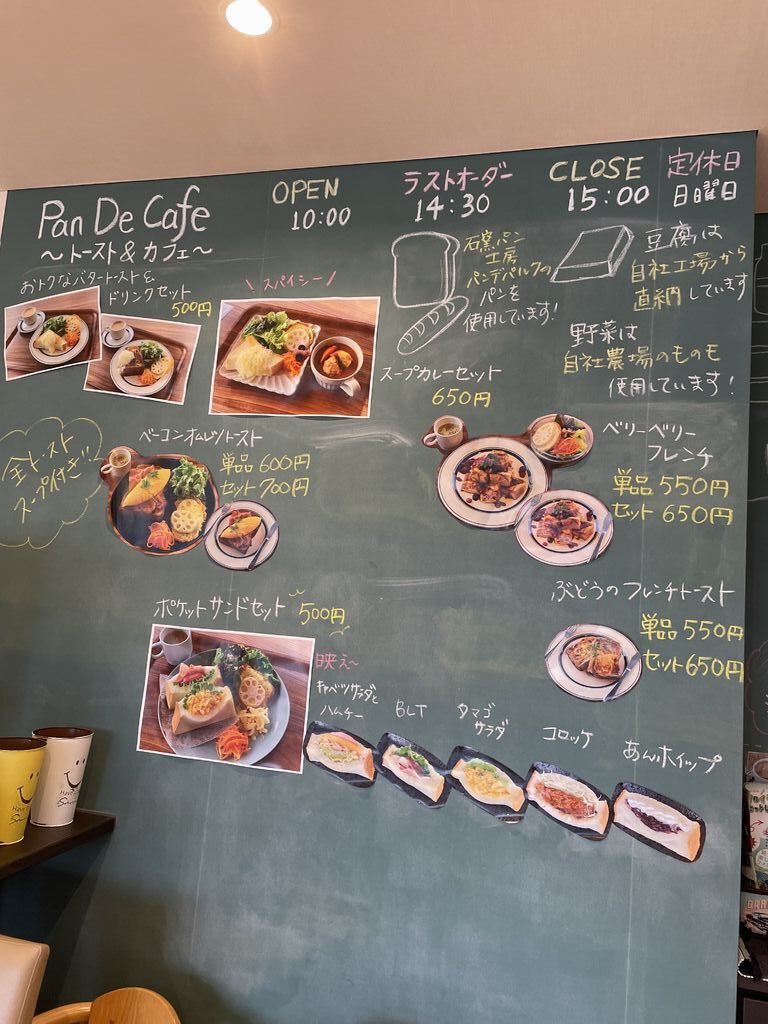 Pan De Cafe
～トースト&カフェ～
OPEN
10:00
ラストオーダー
14:30
CLOSE
15:00
定休日
日曜日
おトクなバタートースト&
ドリンクセット
500円
\ スパイシー /
スープカレーセット
650円
石窯パン
工房
パンデパルクの
パンを
使用しています!
豆腐は
自社工場から
直納しています
野菜は
自社農場のものも
使用しています!
全トースト
スープ付き!!
ベーコンオムレツトースト
単品 600円
セット 700円
ベリーベリー
フレンチ
単品 550円
セット 650円
ポケットサンドセット
500円
映え～
キャベツサラダと
ハムチー
BLT
タマゴ
サラダ
コロッケ
あんホイップ
ぶどうのフレンチトースト
単品 550円
セット 650円